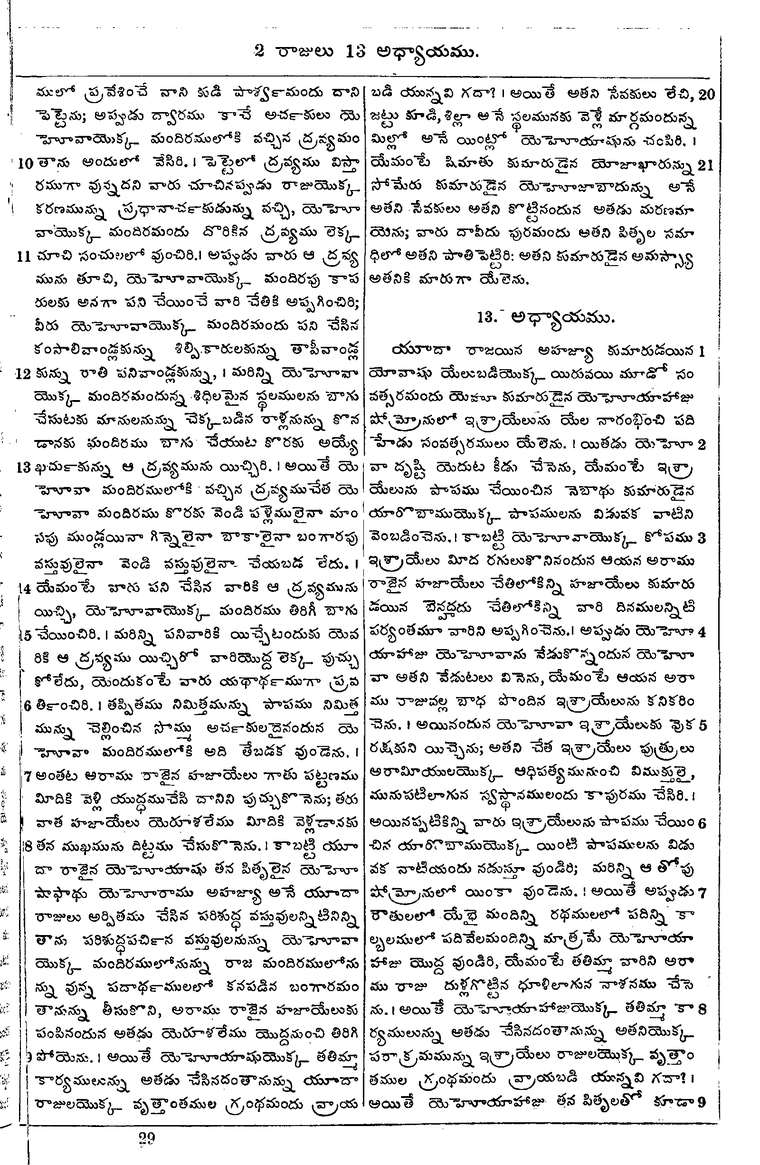 2 రాజులు 13 అధ్యాయము.
ములో ప్రవేశించే వాని కుడి పార్శ్వమందు దాని
పెట్టెను; అప్పుడు ద్వారము కాచే అర్చకులు యె
హోవాయొక్క మందిరములోకి వచ్చిన ద్రవ్యమం
10 తాను అందులో వేసిరి. । పెట్టెలో ద్రవ్యము విస్తా
రముగా వున్నదని వారు చూచినప్పుడు రాజుయొక్క
కరణమున్ను ప్రధానార్చకుడున్ను వచ్చి, యెహో
వాయొక్క మందిరమందు దొరికిన ద్రవ్యము లెక్క
11 చూచి సంచులలో వుంచిరి.। అప్పుడు వారు ఆ ద్రవ్య
మును తూచి, యెహోవాయొక్క మందిరపు కాప
రులకు అనగా పని చేయించే వారి చేతికి అప్పగించిరి;
వీరు యెహోవాయొక్క మందిరమందు పని చేసిన
కంసాలివాండ్లకున్ను శిల్పికారులకున్ను తాపీవాండ్ల
12 కున్ను రాతి పనివాండ్లకున్ను, । మరిన్ని యెహోవా
యొక్క మందిరమందున్న శిధిలమైన స్థలములను బాగు
చేసుటకు మానులనున్ను చెక్కబడిన రాళ్లనున్ను కొన
డానకు మందిరము బాగు చేయుట కొరకు అయ్యే
13 ఖర్చుకున్ను ఆ ద్రవ్యమును యిచ్చిరి. । అయితే యె
హోవా మందిరములోకి వచ్చిన ద్రవ్యముచేత యె
హోవా మందిరము కొరకు వెండి పళ్లెములైనా మాం
సపు ముండ్లయినా గిన్నెలైనా బాకాలైనా బంగారపు
వస్తువులైనా వెండి వస్తువులైనా చేయబడ లేదు. ।
14 యేమంటే బాగు పని చేసిన వారికి ఆ ద్రవ్యమును
యిచ్చి, యెహోవాయొక్క మందిరము తిరిగీ బాగు
15 చేయించిరి. । మరిన్ని పనివారికి యిచ్చేటందుకు యెవ
రికి ఆ ద్రవ్యము యిచ్చిరో వారియొద్ద లెక్క పుచ్చు
కోలేదు, యెందుకంటే వారు యథార్థముగా ప్రవ
6 ర్తించిరి. । తప్పితము నిమిత్తమున్ను పాపము నిమిత్త
మున్ను చెల్లించిన సొమ్ము అర్చకులదైనందున యె
హోవా మందిరములోకి అది తేబడక వుండెను. ।
7 అంతట ఆరాము రాజైన హజాయేలు గాతు పట్టణము
మీదికి వెళ్లి యుద్ధముచేసి దానిని పుచ్చుకొనెను; తరు
వాత హజాయేలు యెరూశలేము మీదికి వెళ్లడానకు
8 తన ముఖమును దిట్టము చేసుకొనెను. । కాబట్టి యూ
దా రాజైన యెహోయాషు తన పితృలైన యెహో
షాఫాథు యెహోరాము అహజ్యా అనే యూదా
రాజులు అర్పితము చేసిన పరిశుద్ధ వస్తువులన్నిటినిన్ని
తాను పరిశుద్ధపర్చిన వస్తువులనున్ను యెహోవా
యొక్క మందిరములోనున్ను రాజ మందిరములోను
న్ను వున్న పదార్థములలో కనపడిన బంగారమం
తానున్ను తీసుకొని, అరాము రాజైన హజాయేలుకు
పంపినందున అతడు యెరూశలేము యొద్దనుంచి తిరిగి
9 పోయెను. । అయితే యెహోయాషుయొక్క తతిమ్మా
కార్యములున్ను అతడు చేసినదంతానున్ను యూదా
రాజులయొక్క వృత్తాంతముల గ్రంథమందు వ్రాయ
బడి యున్నవి గదా? । అయితే అతని సేవకులు లేచి, 20
జట్టు కూడి, శిల్లా అనే స్థలమునకు వెళ్లే మార్గమందున్న
మిల్లో అనే యింట్లో యెహోయాషును చంపిరి. ।
యేమంటే షిమాతు కుమారుడైన యోజాఖారున్ను 21
సోమేరు కుమారుడైన యెహోజాబాదున్ను అనే
అతని సేవకులు అతని కొట్టినందున అతడు మరణమా
యెను; వారు దావీదు పురమందు అతని పితృల సమా
ధిలో అతని పాతిపెట్టిరి: అతని కుమారుడైన అమస్యా
అతనికి మారుగా యేలెను.
13. అధ్యాయము.
యూదా రాజయిన అహజ్యా కుమారుడయిన 1
యోవాషు యేలుబడియొక్క యిరువయి మూడో సం
వత్సరమందు యెహూ కుమారుడైన యెహోయాహాజు
షోమ్రోనులో ఇశ్రాయేలును యేల నారంభించి పది
హేడు సంవత్సరములు యేలెను. । యితడు యెహో 2
వా దృష్టి యెదుట కీడు చేసెను, యేమంటే ఇశ్రా
యేలును పాపము చేయించిన నెబాథు కుమారుడైన
యారోబాముయొక్క పాపములను విడువక వాటిని
వెంబడించెను. । కాబట్టి యెహోవాయొక్క కోపము 3
ఇశ్రాయేలు మీద రగులుకొనినందున ఆయన అరాము
రాజైన హజాయేలు చేతిలోకిన్ని హజాయేలు కుమారు
డయిన బెన్హదదు చేతిలోకిన్ని వారి దినములన్నిటి
పర్యంతమూ వారిని అప్పగించెను.। అప్పుడు యెహో 4
యాహాజు యెహోవాను వేడుకొన్నందున యెహో
వా అతని వేడుటలు వినెను, యేమంటే ఆయన అరా
ము రాజువల్ల బాధ పొందిన ఇశ్రాయేలును కనికరిం
చెను. । అయినందున యెహోవా ఇశ్రాయేలుకు వొక 5
రక్షకుని యిచ్చెను; అతని చేత ఇశ్రాయేలు పుత్రులు
అరామీయులయొక్క ఆధిపత్యమునుంచి విముక్తులై,
మునుపటిలాగున స్వస్థానములందు కాపురము చేసిరి. ।
అయినప్పటికిన్ని వారు ఇశ్రాయేలును పాపము చేయిం 6
చిన యారోబాముయొక్క యింటి పాపములను విడు
వక నాటియందు నడుస్తూ వుండిరి; మరిన్ని ఆ తోపు
షోమ్రోనులో యింకా వుండెను. । అయితే అప్పుడు 7
రౌతులలో యేభై మందిన్ని రథములలో పదిన్ని కా
ల్బలములో పదివేలమందిన్ని మాత్రమే యెహోయా
హాజు యొద్ద వుండిరి, యేమంటే తతిమ్మా వారిని అరా
ము రాజు దుళ్లగొట్టిన ధూళిలాగున నాశనము చేసె
ను. । అయితే యెహోయాహాజుయొక్క తతిమ్మా కా 8
ర్యములున్ను అతడు చేసినదంతానున్ను అతనియొక్క
పరాక్రమమున్ను ఇశ్రాయేలు రాజులయొక్క వృత్తాం
తముల గ్రంథమందు వ్రాయబడి యున్నవి గదా? ।
అయితే యెహోయాహాజు తన పితృలతో కూడా 9
29